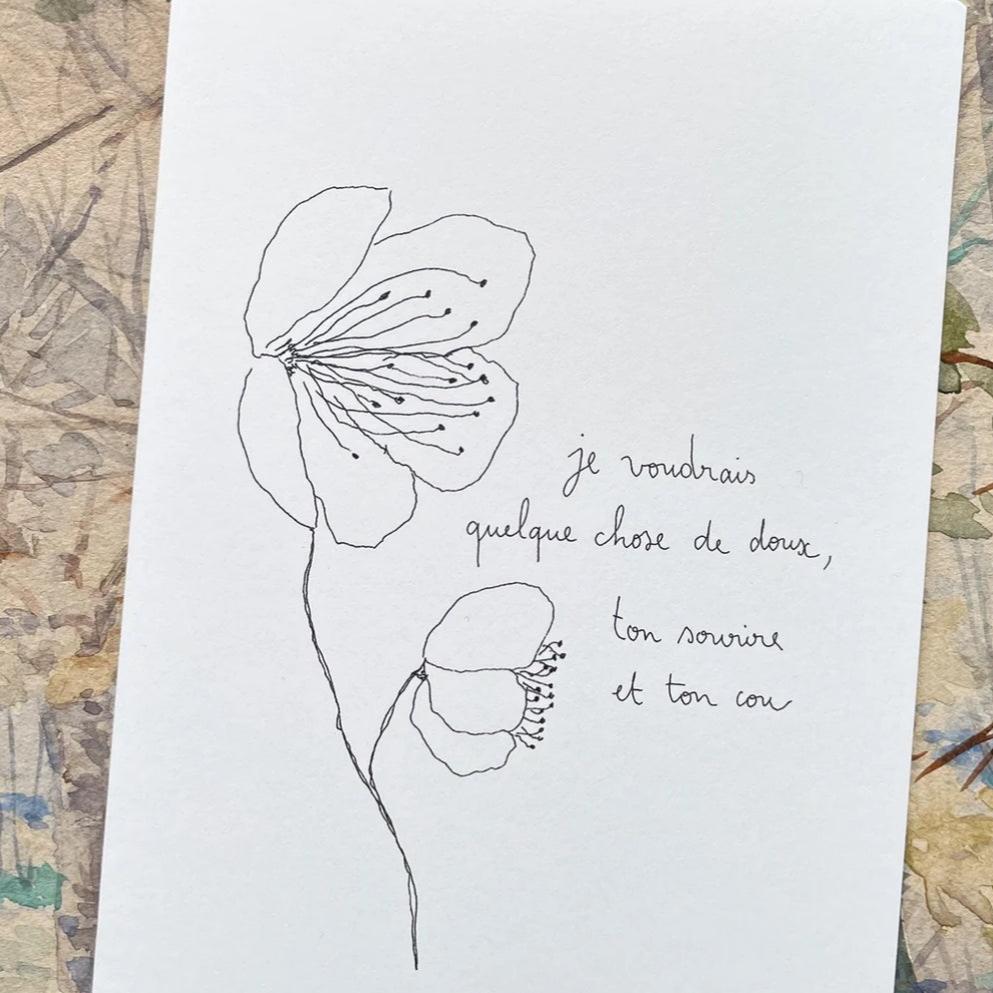 je voudrais
quelque chose de doux,
ton sourire
et ton cou